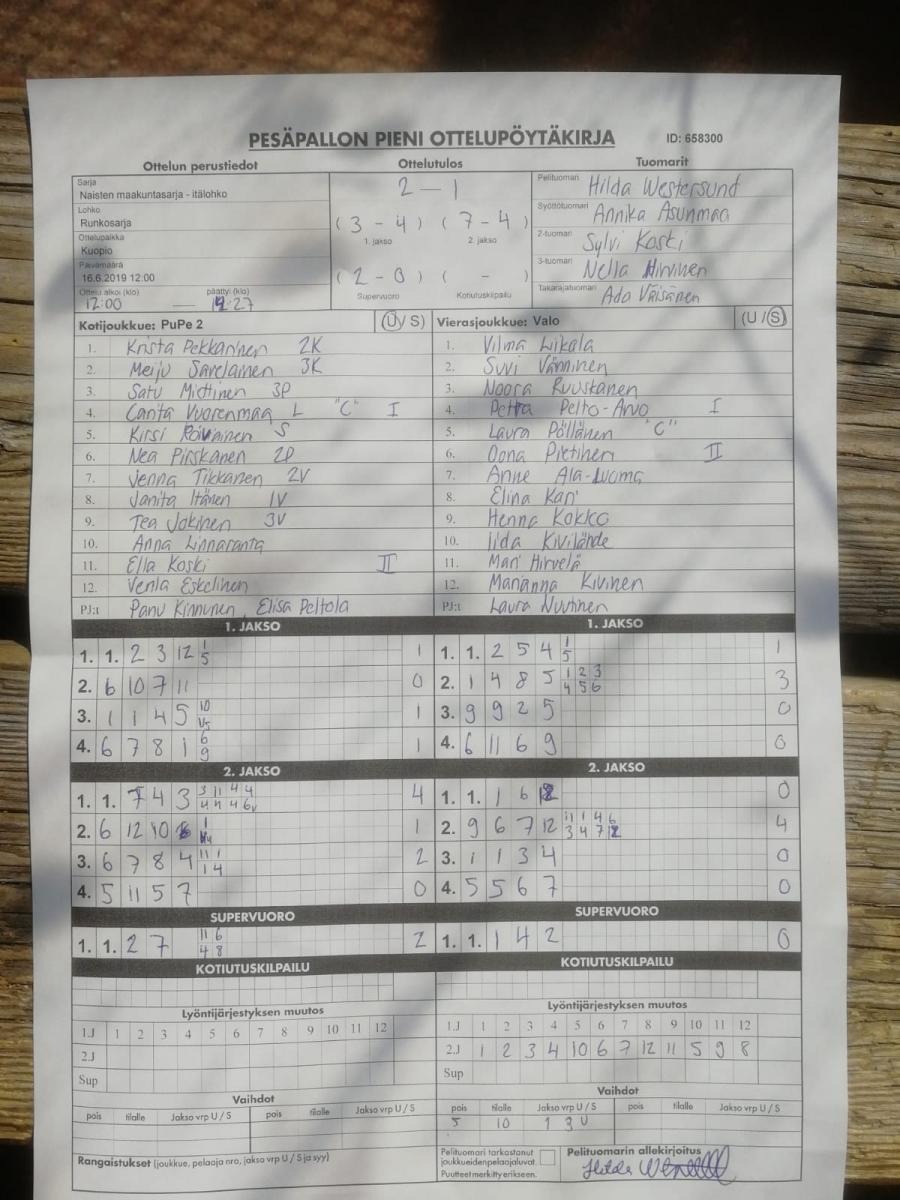 PESÄPALLON PIENI OTTELUPÖYTÄKIRJA ID: 658300
Ottelun perustiedot Ottelutulos Tuomarit
Sarja
Naisten maakuntasarja - itälohko
Lohko
Runkosarja
Ottelupaikka
Kuopio
Päivämäärä
16.6.2019 12:00
Ottelu alkoi (klo) päättyi (klo)
12:00 — 27
2 - 1
(3 - 4) (7 - 4)
1. jakso 2. jakso
(2 - 0) ( - )
Supervuoro Kotiutuskilpailu
Pelituomari Hilda Westersund
Syöttötuomari Annika Asunmaa
2-tuomari Sylvi Koski
3-tuomari Nella Hirvinen
Takarajatuomari Ada Väisänen
Kotijoukkue: PuPe 2 (U / S)
1. Krista Pekkarinen 2K
2. Meiju Savelainen 3K
3. Satu Miettinen 3P
4. Carita Vuorenmaa L "C" I
5. Kirsi Roivainen S
6. Nea Pirskanen 2P
7. Jenna Tikkanen 2V
8. Janita Itänen 1V
9. Tea Jokinen 3V
10. Anna Linnaranta
11. Ella Koski II
12. Venla Eskelinen
PJ:t Panu Kinnunen, Elisa Peltola
Vierasjoukkue: Valo (U / S)
1. Vilma Liikala
2. Suvi Vänninen
3. Noora Ruuskanen
4. Petra Pelto-Arvo I
5. Laura Pöllänen "C"
6. Oona Pietinen II
7. Anne Ala-Luoma
8. Elina Kari
9. Henna Kokko
10. Iida Kivilähde
11. Mari Hirvelä
12. Marianna Kivinen
PJ:t Laura Nuutinen
1. JAKSO
1. 1. 2 3 12 1 5 1
2. 6 10 7 11 0
3. 1 1 4 5 10 1
4. 6 7 8 1 6 9 1
1. JAKSO
1. 1. 2 5 4 1 5 1
2. 1 4 8 5 1 2 3 4 5 6 3
3. 9 9 2 5 0
4. 6 11 6 9 0
2. JAKSO
1. 1. 7 4 3 3 11 4 4 4
2. 6 12 10 1 1
3. 6 7 8 4 11 1 1 4 2
4. 5 11 5 7 0
2. JAKSO
1. 1. 1 6 0
2. 9 6 7 12 11 1 4 6 3 4 7 4
3. 1 1 3 4 0
4. 5 5 6 7 0
SUPERVUORO
1. 1. 2 7 11 6 4 8 2
SUPERVUORO
1. 1. 1 4 2 0
KOTIUTUSKILPAILU
KOTIUTUSKILPAILU
Lyöntijärjestyksen muutos
1.J 1 2 3 4 5 6 7 8 9 10 11 12
2.J
Sup
Lyöntijärjestyksen muutos
1.J 1 2 3 4 5 6 7 8 9 10 11 12
2.J 1 2 3 4 10 6 7 12 11 5 9 8
Sup
Vaihdot
pois tilalle Jakso vrp U / S pois tilalle Jakso vrp U / S
Vaihdot
pois tilalle Jakso vrp U / S pois tilalle Jakso vrp U / S
5 10 1 3 U
Rangaistukset (joukkue, pelaaja nro, jakso vrp U / S ja syy)
Pelituomari tarkastanut
joukkueidenpelaajaluvat
Puutteet merkitty erikseen.
Pelituomarin allekirjoitus